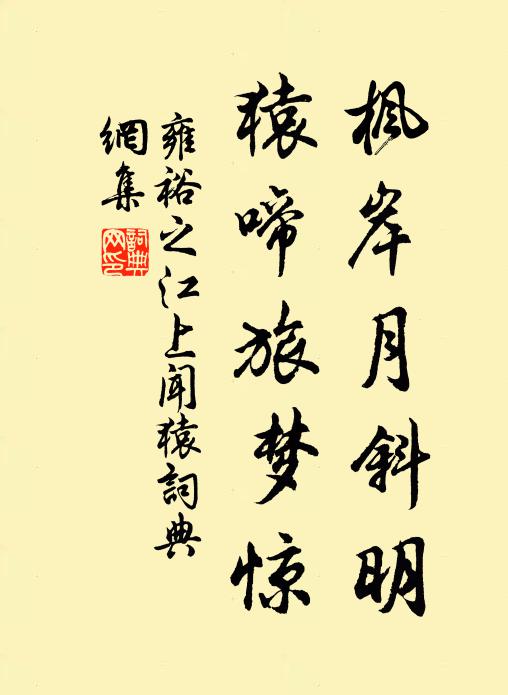 枫岸月斜明
猿啼旅梦惊
雍裕之江上闻猿詞典
網集
詞典
网印